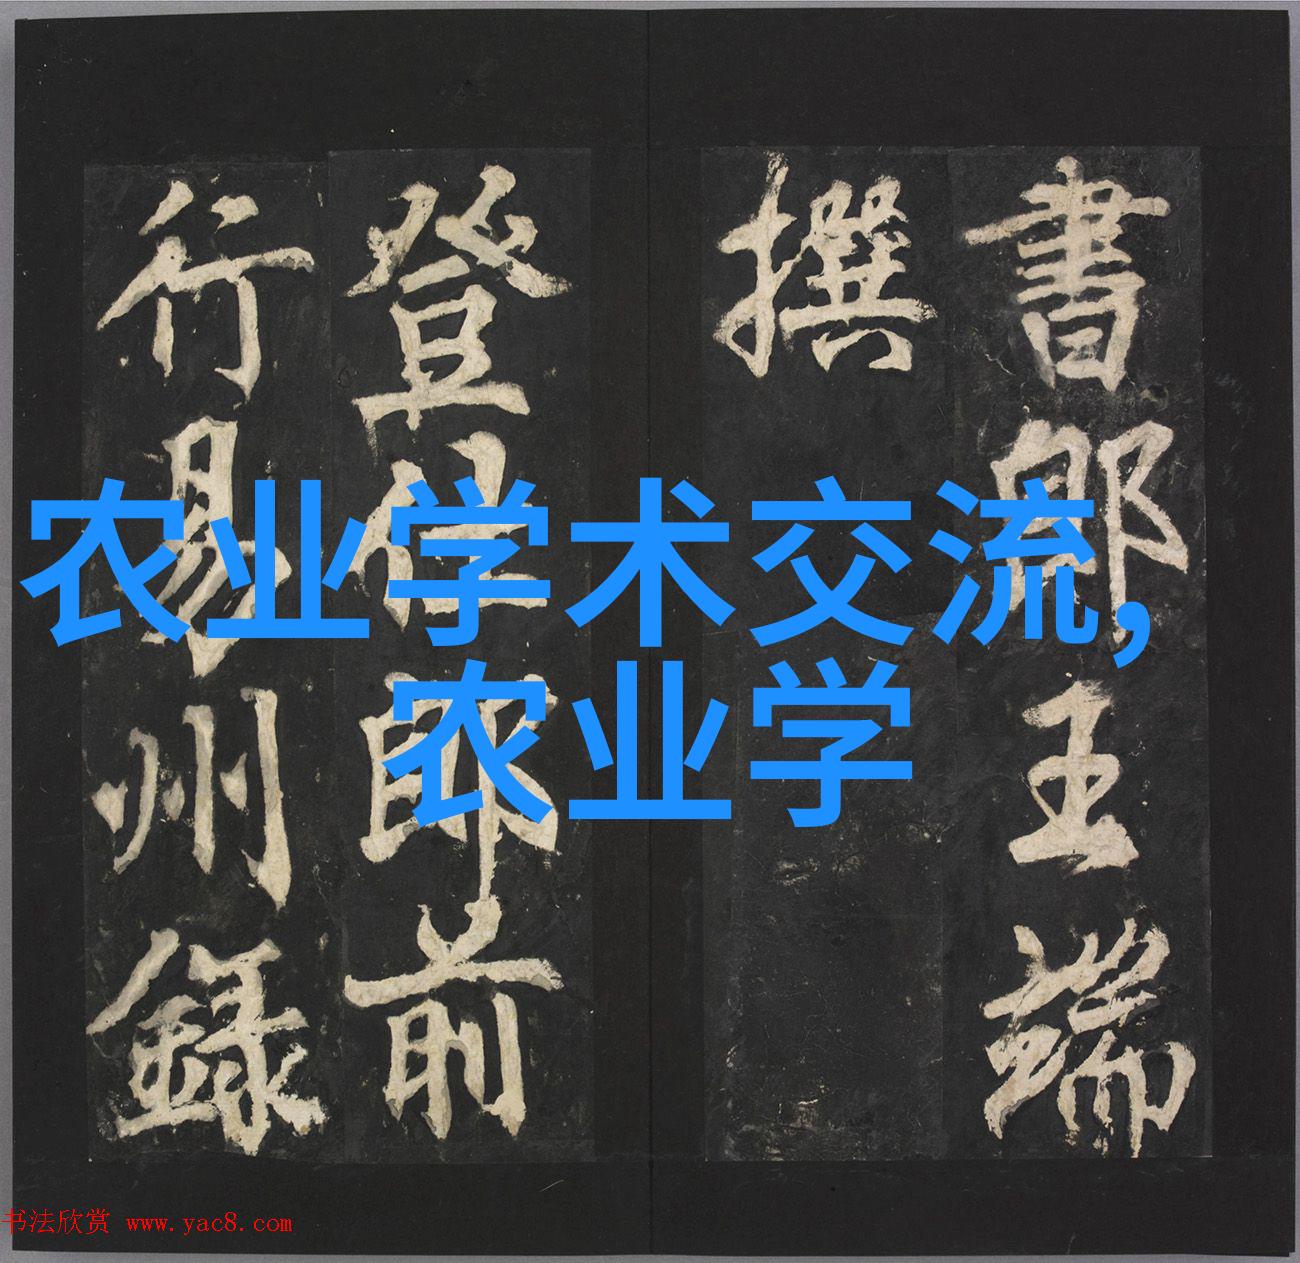 書郎王端
撰
登仕郎前
行易州録
农业学术交流,
农业学
书法欣赏 www.yac8.com